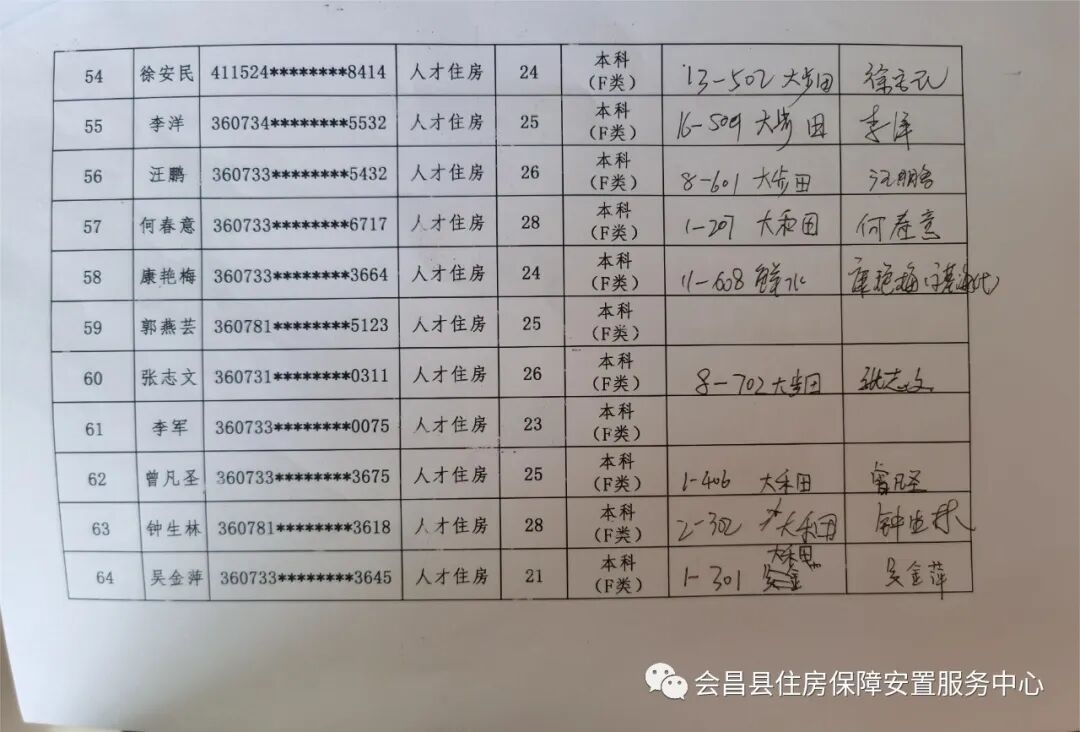 54 徐安民 411524********8414 人才住房 24 本科（F类） 13-502 大步田 徐安民
55 李洋 360734********5532 人才住房 25 本科（F类） 16-509 大步田 李洋
56 汪鹏 360733********5432 人才住房 26 本科（F类） 8-601 大步田 汪鹏
57 何春意 360733********6717 人才住房 28 本科（F类） 1-207 大和田 何春意
58 康艳梅 360733********3664 人才住房 24 本科（F类） 11-608 水 康艳梅
59 郭燕芸 360781********5123 人才住房 25 本科（F类）
60 张志文 360731********0311 人才住房 26 本科（F类） 8-702 大步田 张志文
61 李军 360733********0075 人才住房 23 本科（F类）
62 曾凡圣 360733********3675 人才住房 25 本科（F类） 1-406 大禾田 曾凡圣
63 钟生林 360781********3618 人才住房 28 本科（F类） 2-302 大和田 钟生林
64 吴金萍 360733********3645 人才住房 21 本科（F类） 1-301 大和田 吴金萍
会昌县住房保障安置服务中心